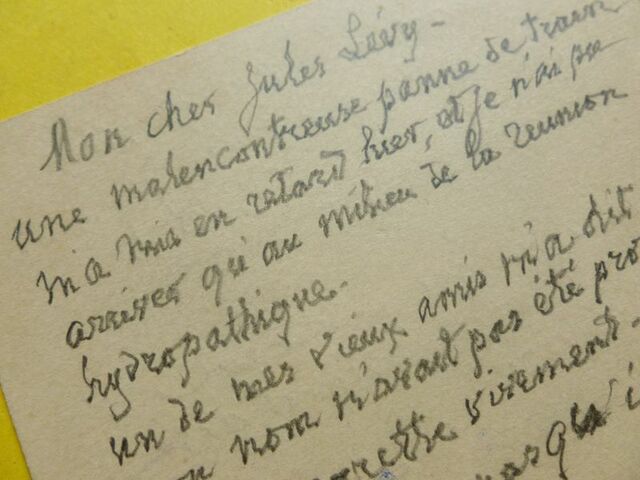 Mon cher Jules Lévy -
une malencontreuse panne de train
m'a mis en retard hier, et je n'ai pu
arriver qu'au milieu de la reunion
hydropathique.
un de mes vieux amis m'a dit
mon nom n'avait pas été pro
regrette vivement -